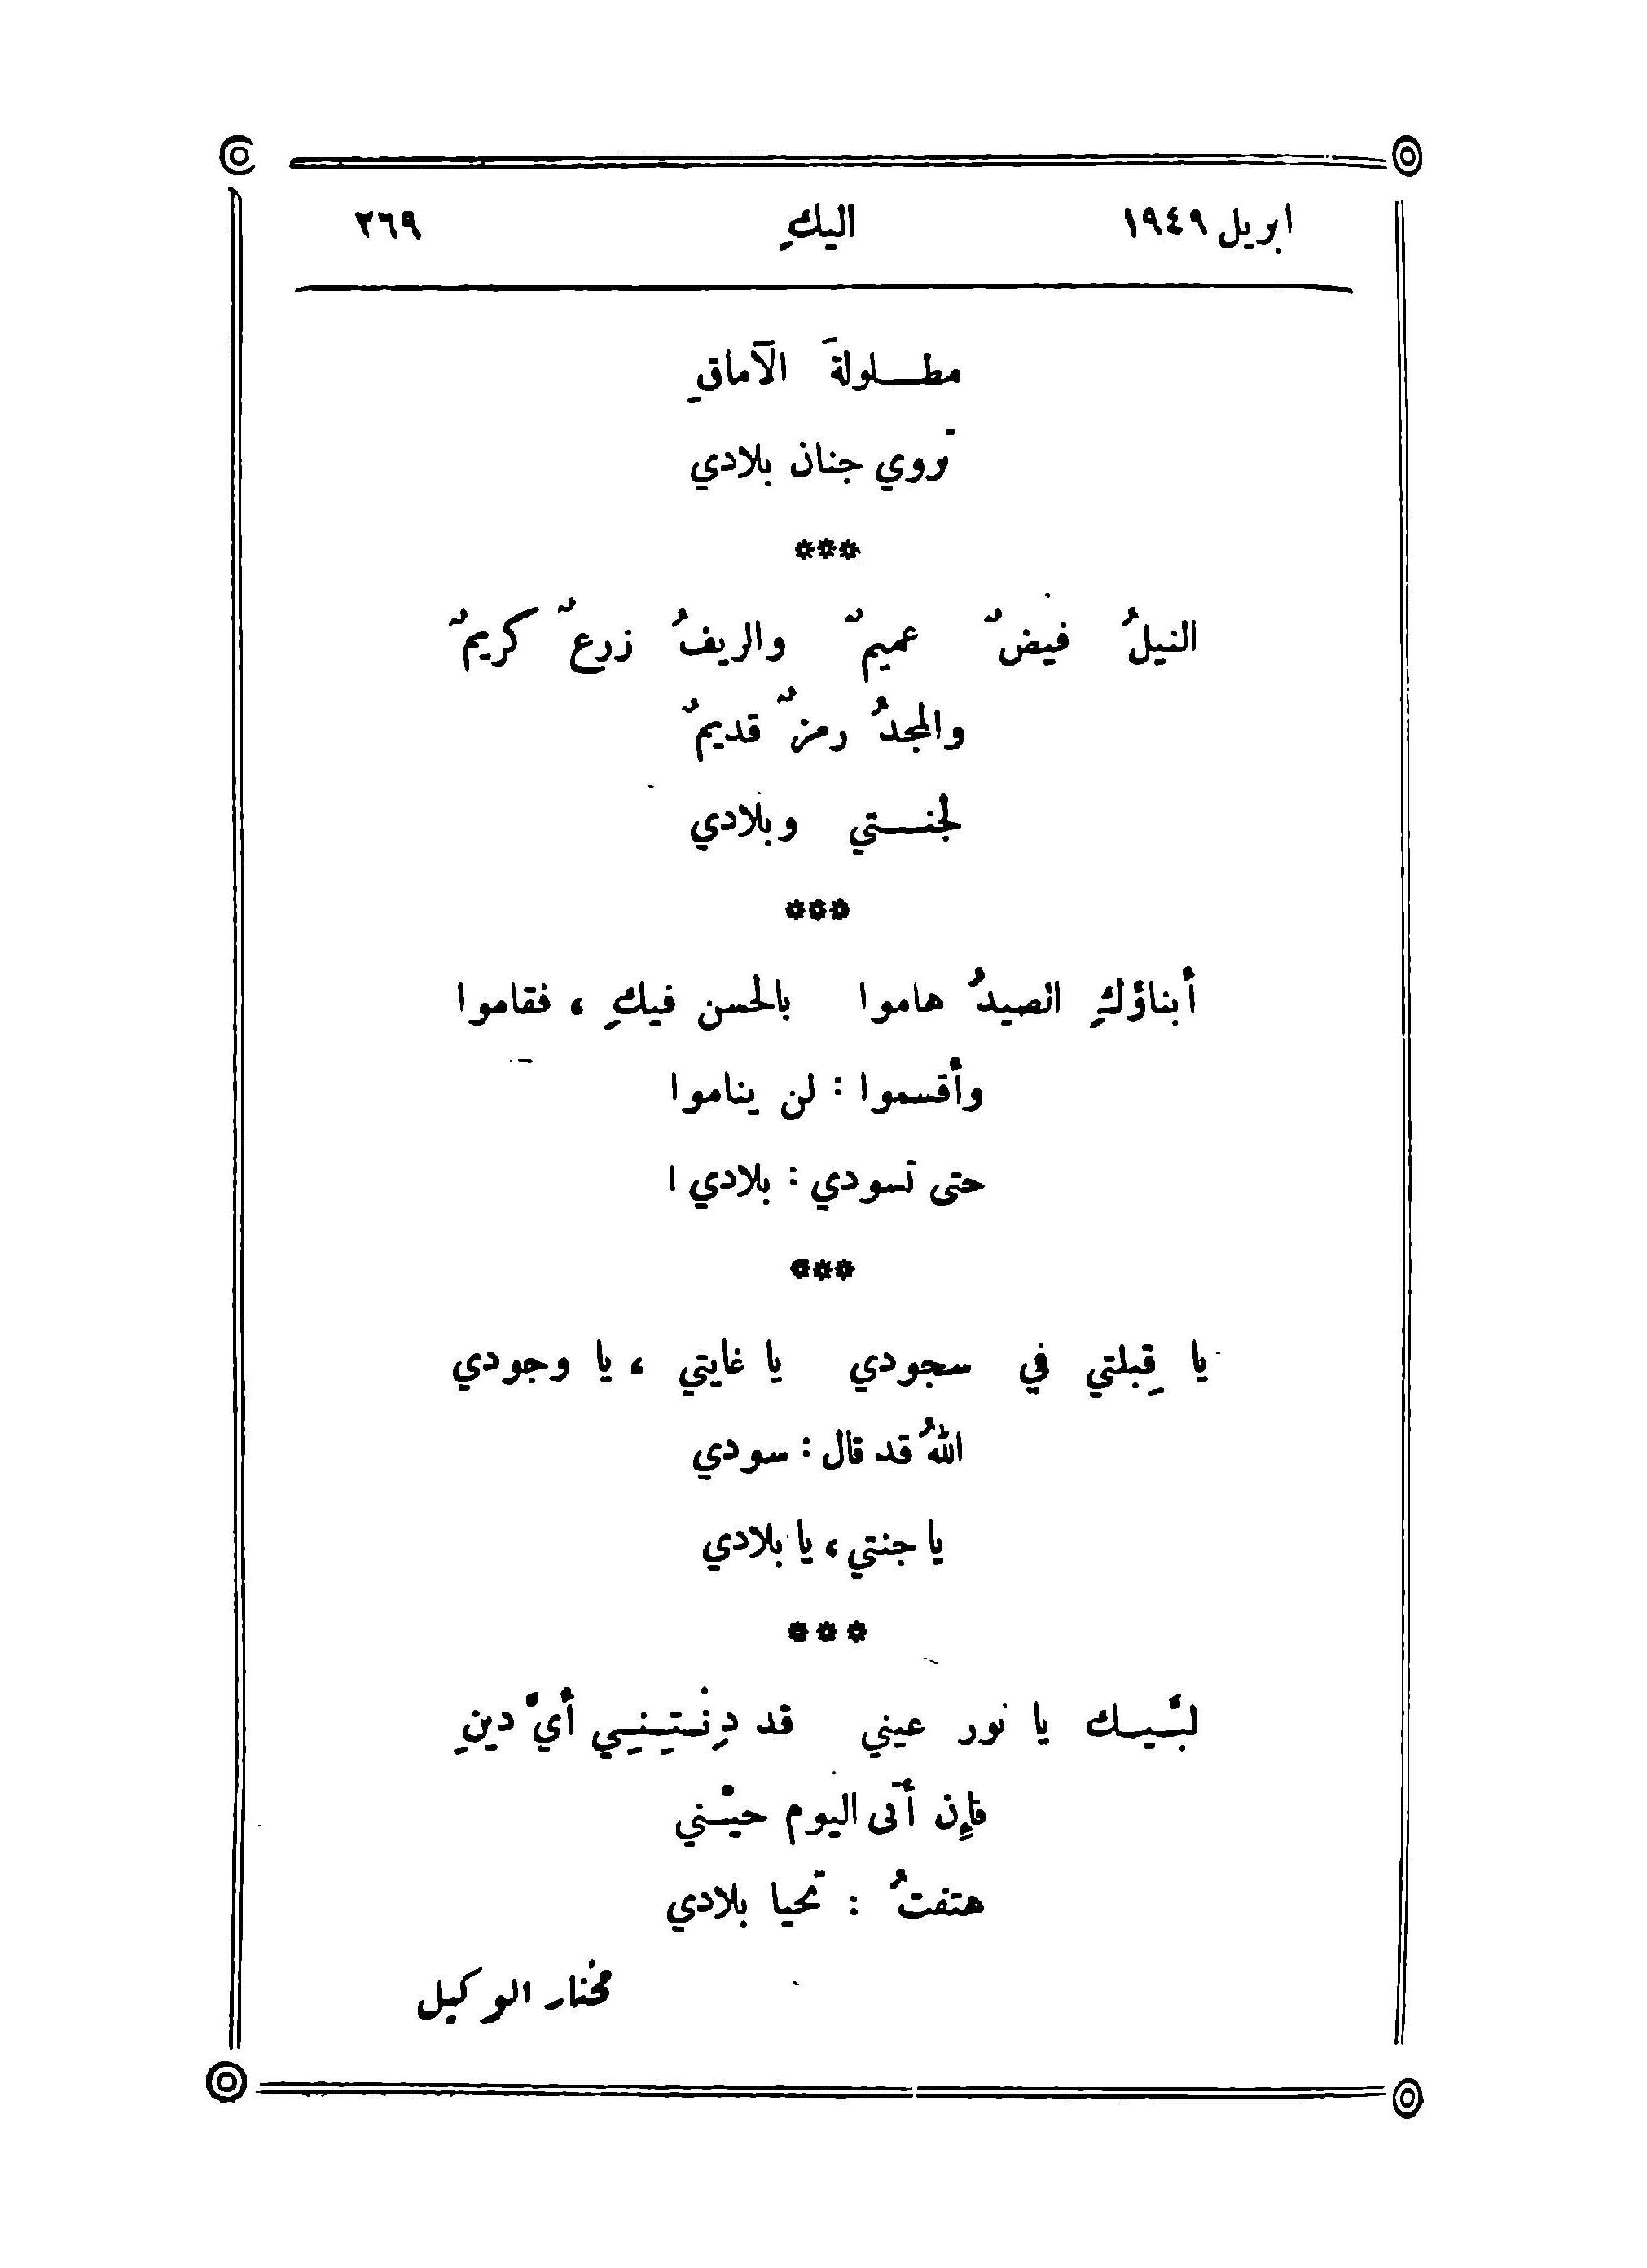 ابريل ١٩٤٩ اليكِ ٢٦٩
مطلولةَ الآماقِ
تروي جنان بلادي
***
النيلُ فيضٌ عميمٌ والريفُ زرعٌ كريمٌ
والمجدُ رمزٌ قديمٌ
لجنتي وبلادي
***
أبناؤكِ الصيدُ هاموا بالحسن فيكِ ، فقاموا
وأقسموا : لن يناموا
حتى تسودي : بلادي !
***
يا قِبلتي في سجودي يا غايتي ، يا وجودي
اللهُ قد قال : سودي
يا جنتي ، يا بلادي
***
لبَّيك يا نور عيني قد دِنْتِنِي أيَّ دينِ
فإن أتى اليوم حيْني
هتفتُ : تحيا بلادي
مختار الوكيل